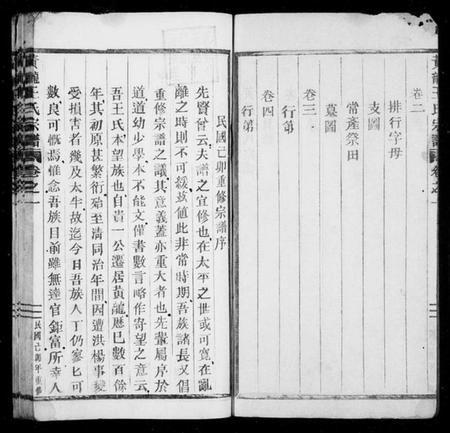 卷二
排行字母
支圖
常產祭田
墓圖
卷三
行第
卷四
行第
黃龍王氏宗譜
卷之一
民國己卯重修宗譜序
先賢曾云夫譜之宜修也在太平之世或可寬在亂
離之時則不可緩茲値此非常時期吾族諸長又倡
重修宗譜之議其意義蓋亦重大者也先輩屬序於
道道幼少學本不能文僅書數言略作寄望之意云
吾王氏本望族也自貴一公遷居黃龍歷已數百餘
年其初原甚繁衍殆至淸同治年間因遭洪楊事變
受損害者幾及太牛故迄今日吾族人丁仍寥匕可
數良可慨焉惟念吾族目前雖無達官鉅富所幸人
黃龍王氏宗譜
卷之一
民國己卯年重修